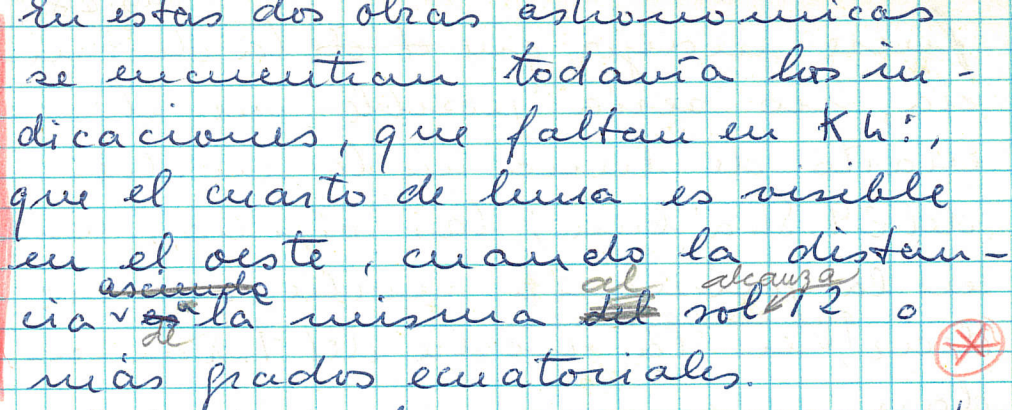 En estas dos obras astronomicas
se encuentran todavía las in-
dicaciones, que faltan en Kh:,
que el cuarto de luna es visible
en el oeste, cuando la distan-
asciende al alcanza
cia de la misma del sol 12 o
más grados ecuatoriales.